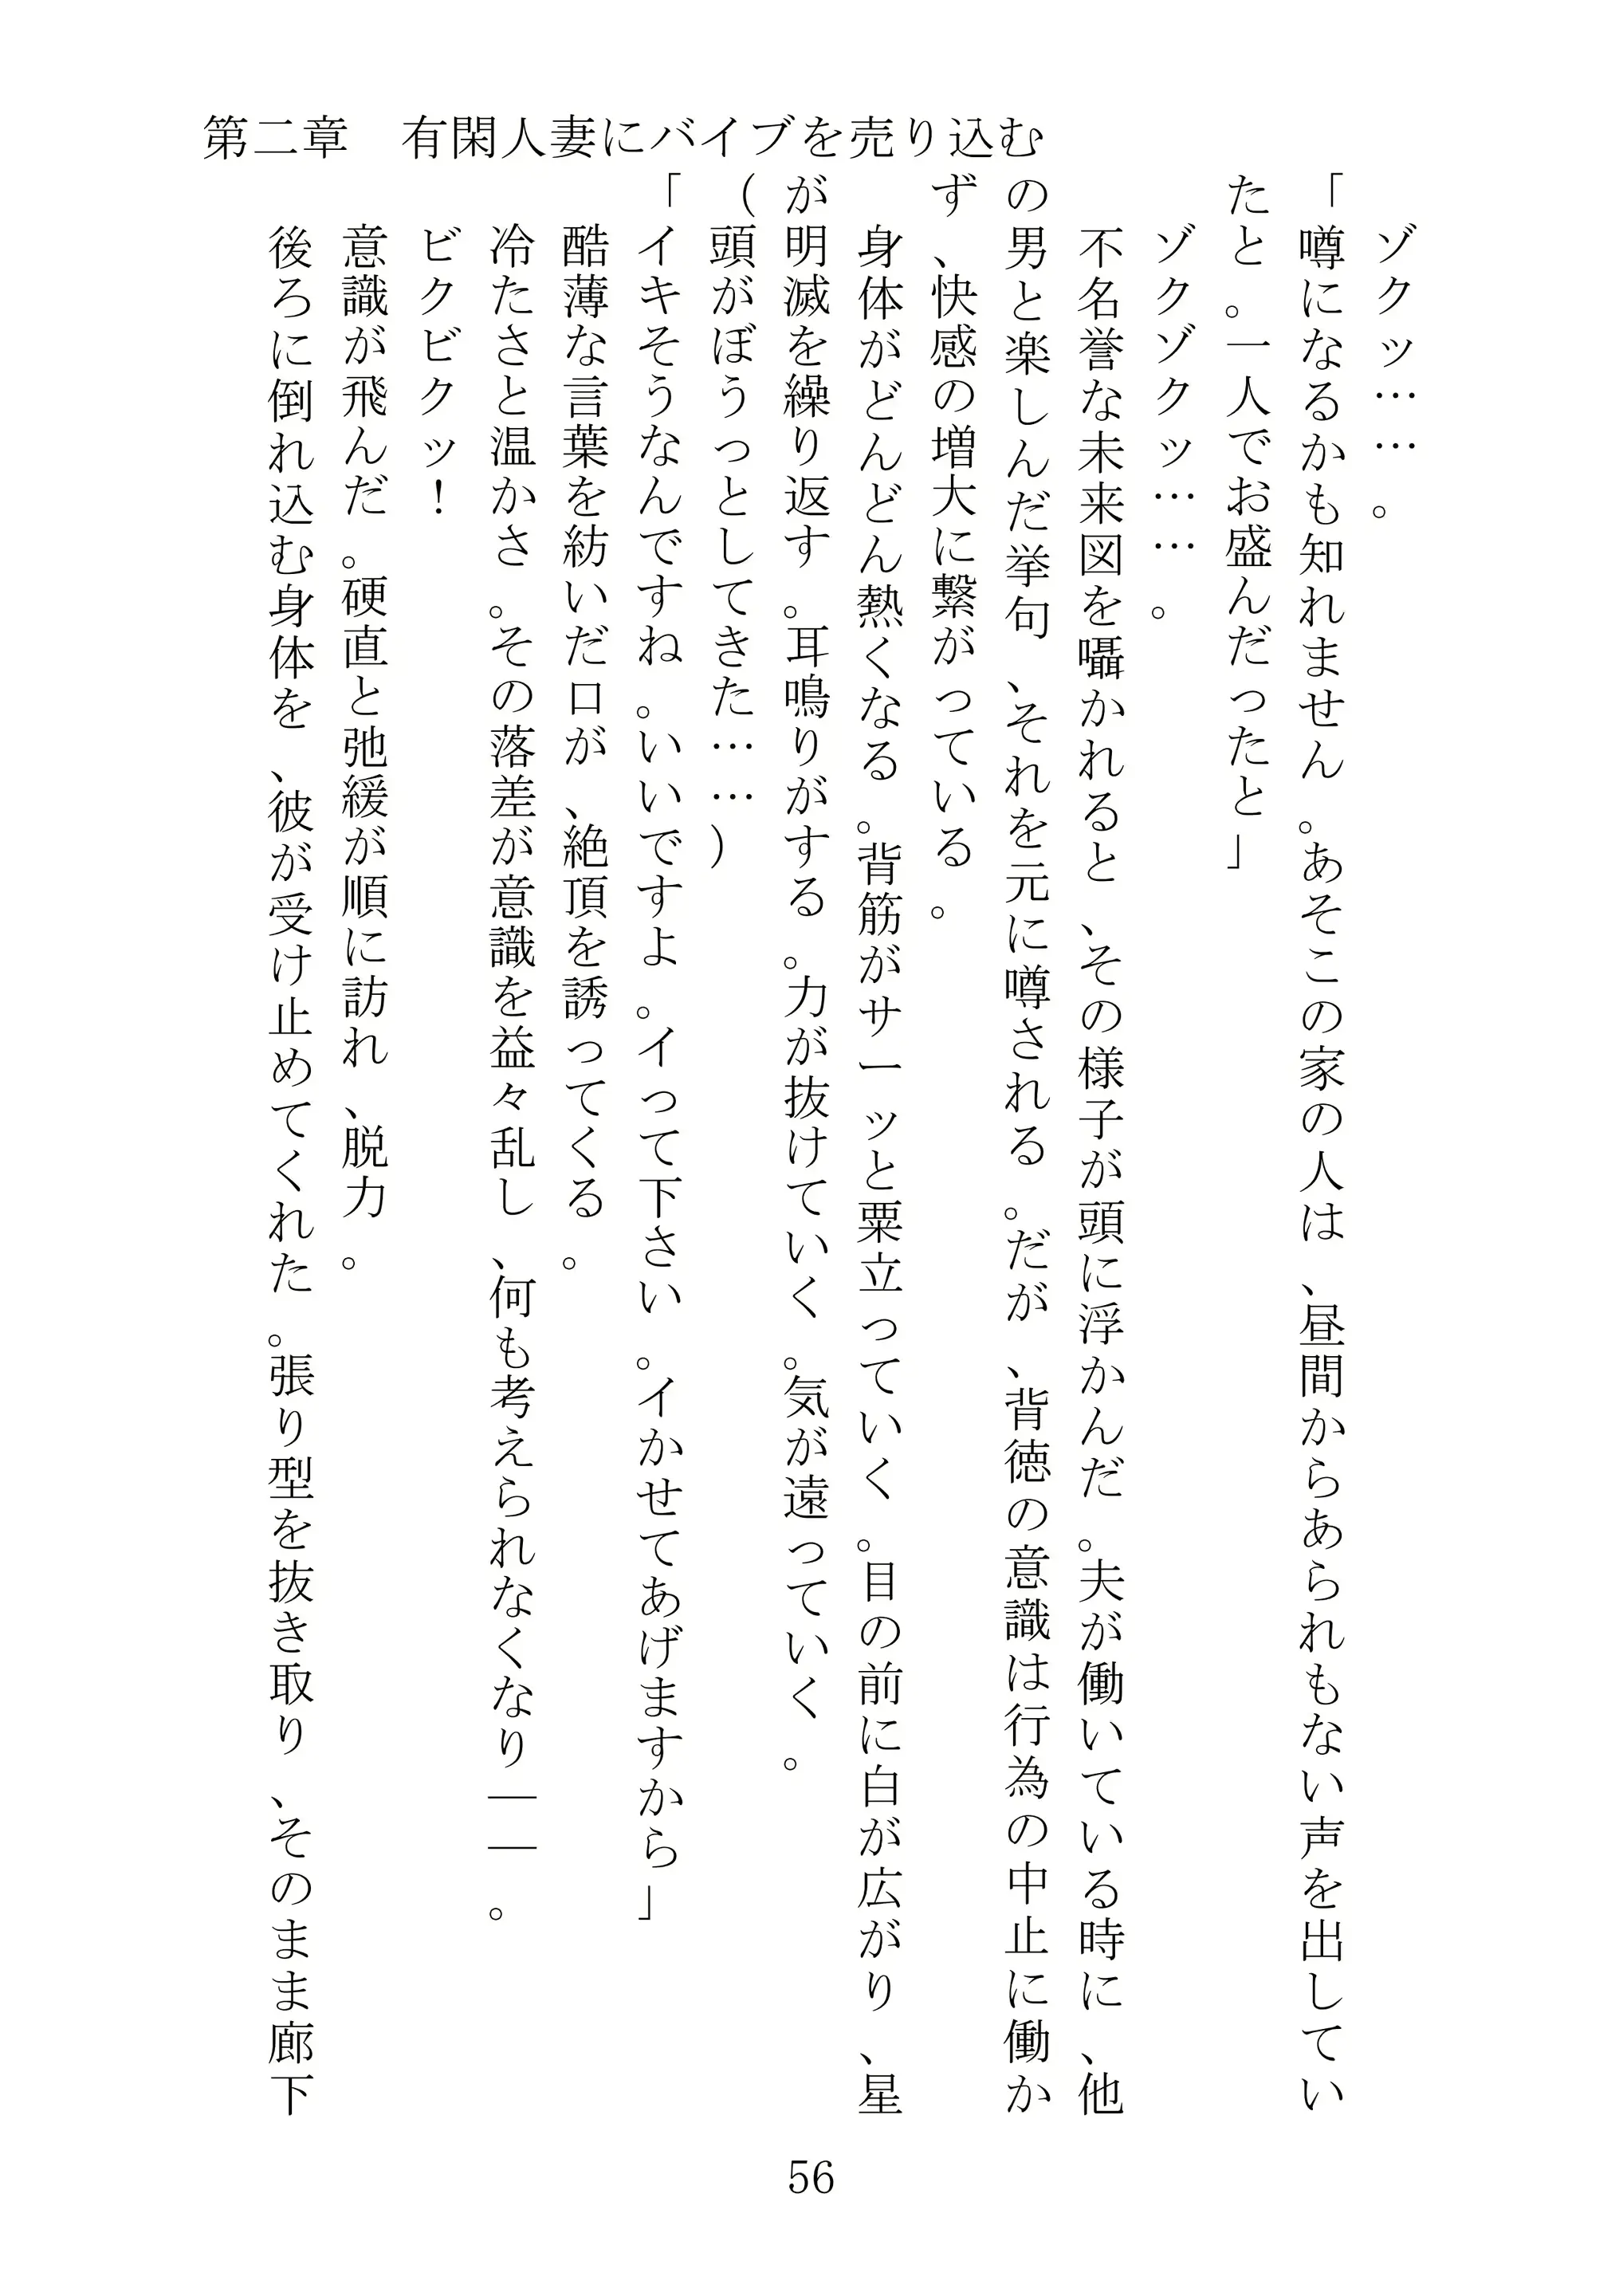 第二章　有閑人妻にバイブを売り込む
　ゾクッ……。
「噂になるかも知れません。あそこの家の人は、昼間からあられもない声を出してい
たと。一人でお盛んだったと」
　ゾクゾクッ……。
　不名誉な未来図を囁かれると、その様子が頭に浮かんだ。夫が働いている時に、他
の男と楽しんだ挙句、それを元に噂される。だが、背徳の意識は行為の中止に働か
ず、快感の増大に繋がっている。
　身体がどんどん熱くなる。背筋がサーッと粟立っていく。目の前に白が広がり、星
が明滅を繰り返す。耳鳴りがする。力が抜けていく。気が遠っていく。
（頭がぼうっとしてきた……）
「イキそうなんですね。いいですよ。イって下さい。イかせてあげますから」
　酷薄な言葉を紡いだ口が、絶頂を誘ってくる。
　冷たさと温かさ。その落差が意識を益々乱し、何も考えられなくなり――。
　ビクビクッ！
　意識が飛んだ。硬直と弛緩が順に訪れ、脱力。
　後ろに倒れ込む身体を、彼が受け止めてくれた。張り型を抜き取り、そのまま廊下
56